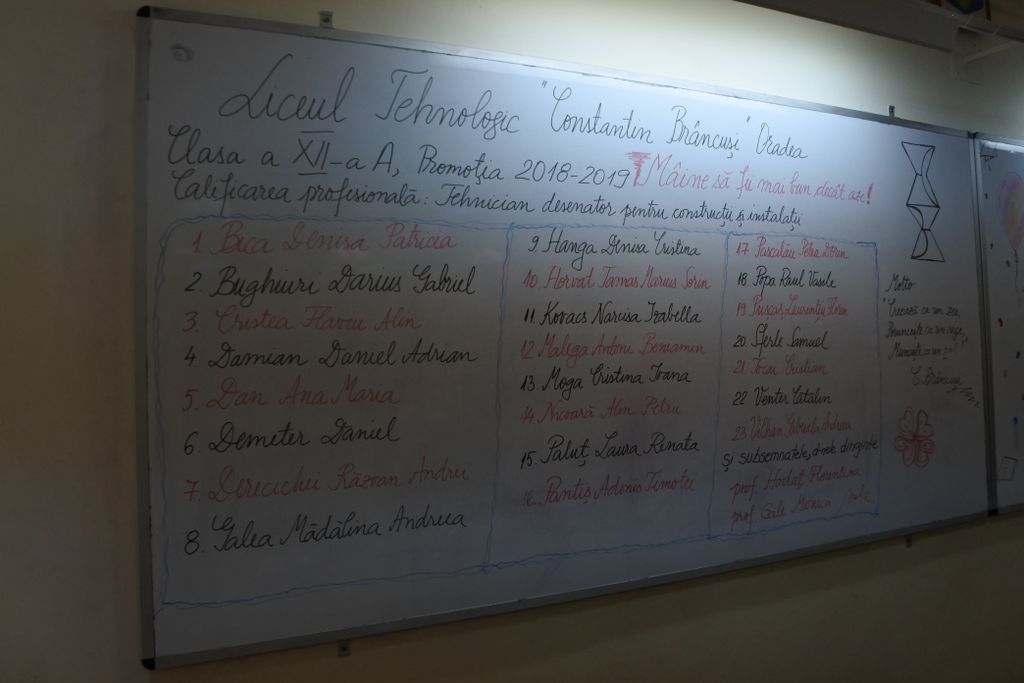 Liceul Tehnologic "Constantin Brâncuși" Oradea
Clasa a XII-a A, Promoția 2018-2019
Mâine să fii mai bun decât azi!
Calificarea profesională: Tehnician desenator pentru construcții și instalații
1. Bica Denisa Patricia
2. Bughiuri Darius Gabriel
3. Cristea Flaviu Alin
4. Damian Daniel Adrian
5. Dan Ana Maria
6. Demeter Daniel
7. Derecichei Răzvan Andrei
8. Galea Mădălina Andreea
9. Hanga Denisa Cristina
10. Horvat Tamas Marius Sorin
11. Kovacs Narcisa Izabella
12. Malega Antoni Beniamin
13. Moga Cristina Ioana
14. Nicoară Alin Petru
15. Paluț Laura Renata
16. Pantiș Adonis Timotei
17. Pascalău Petru Dorin
18. Popa Raul Vasile
19. Pușcaș Laurențiu Florin
20. Sferle Samuel
21. Tocai Cristian
22. Venter Catalin
23. Vilhan Gabriela Andreea
și subsemnatele, d-nele diriginte
prof. Hoduț Florentina
prof. Gale Monica
Motto
"Creează ca un zeu,
Poruncește ca un rege,
Muncește ca un
C. Brâncuși